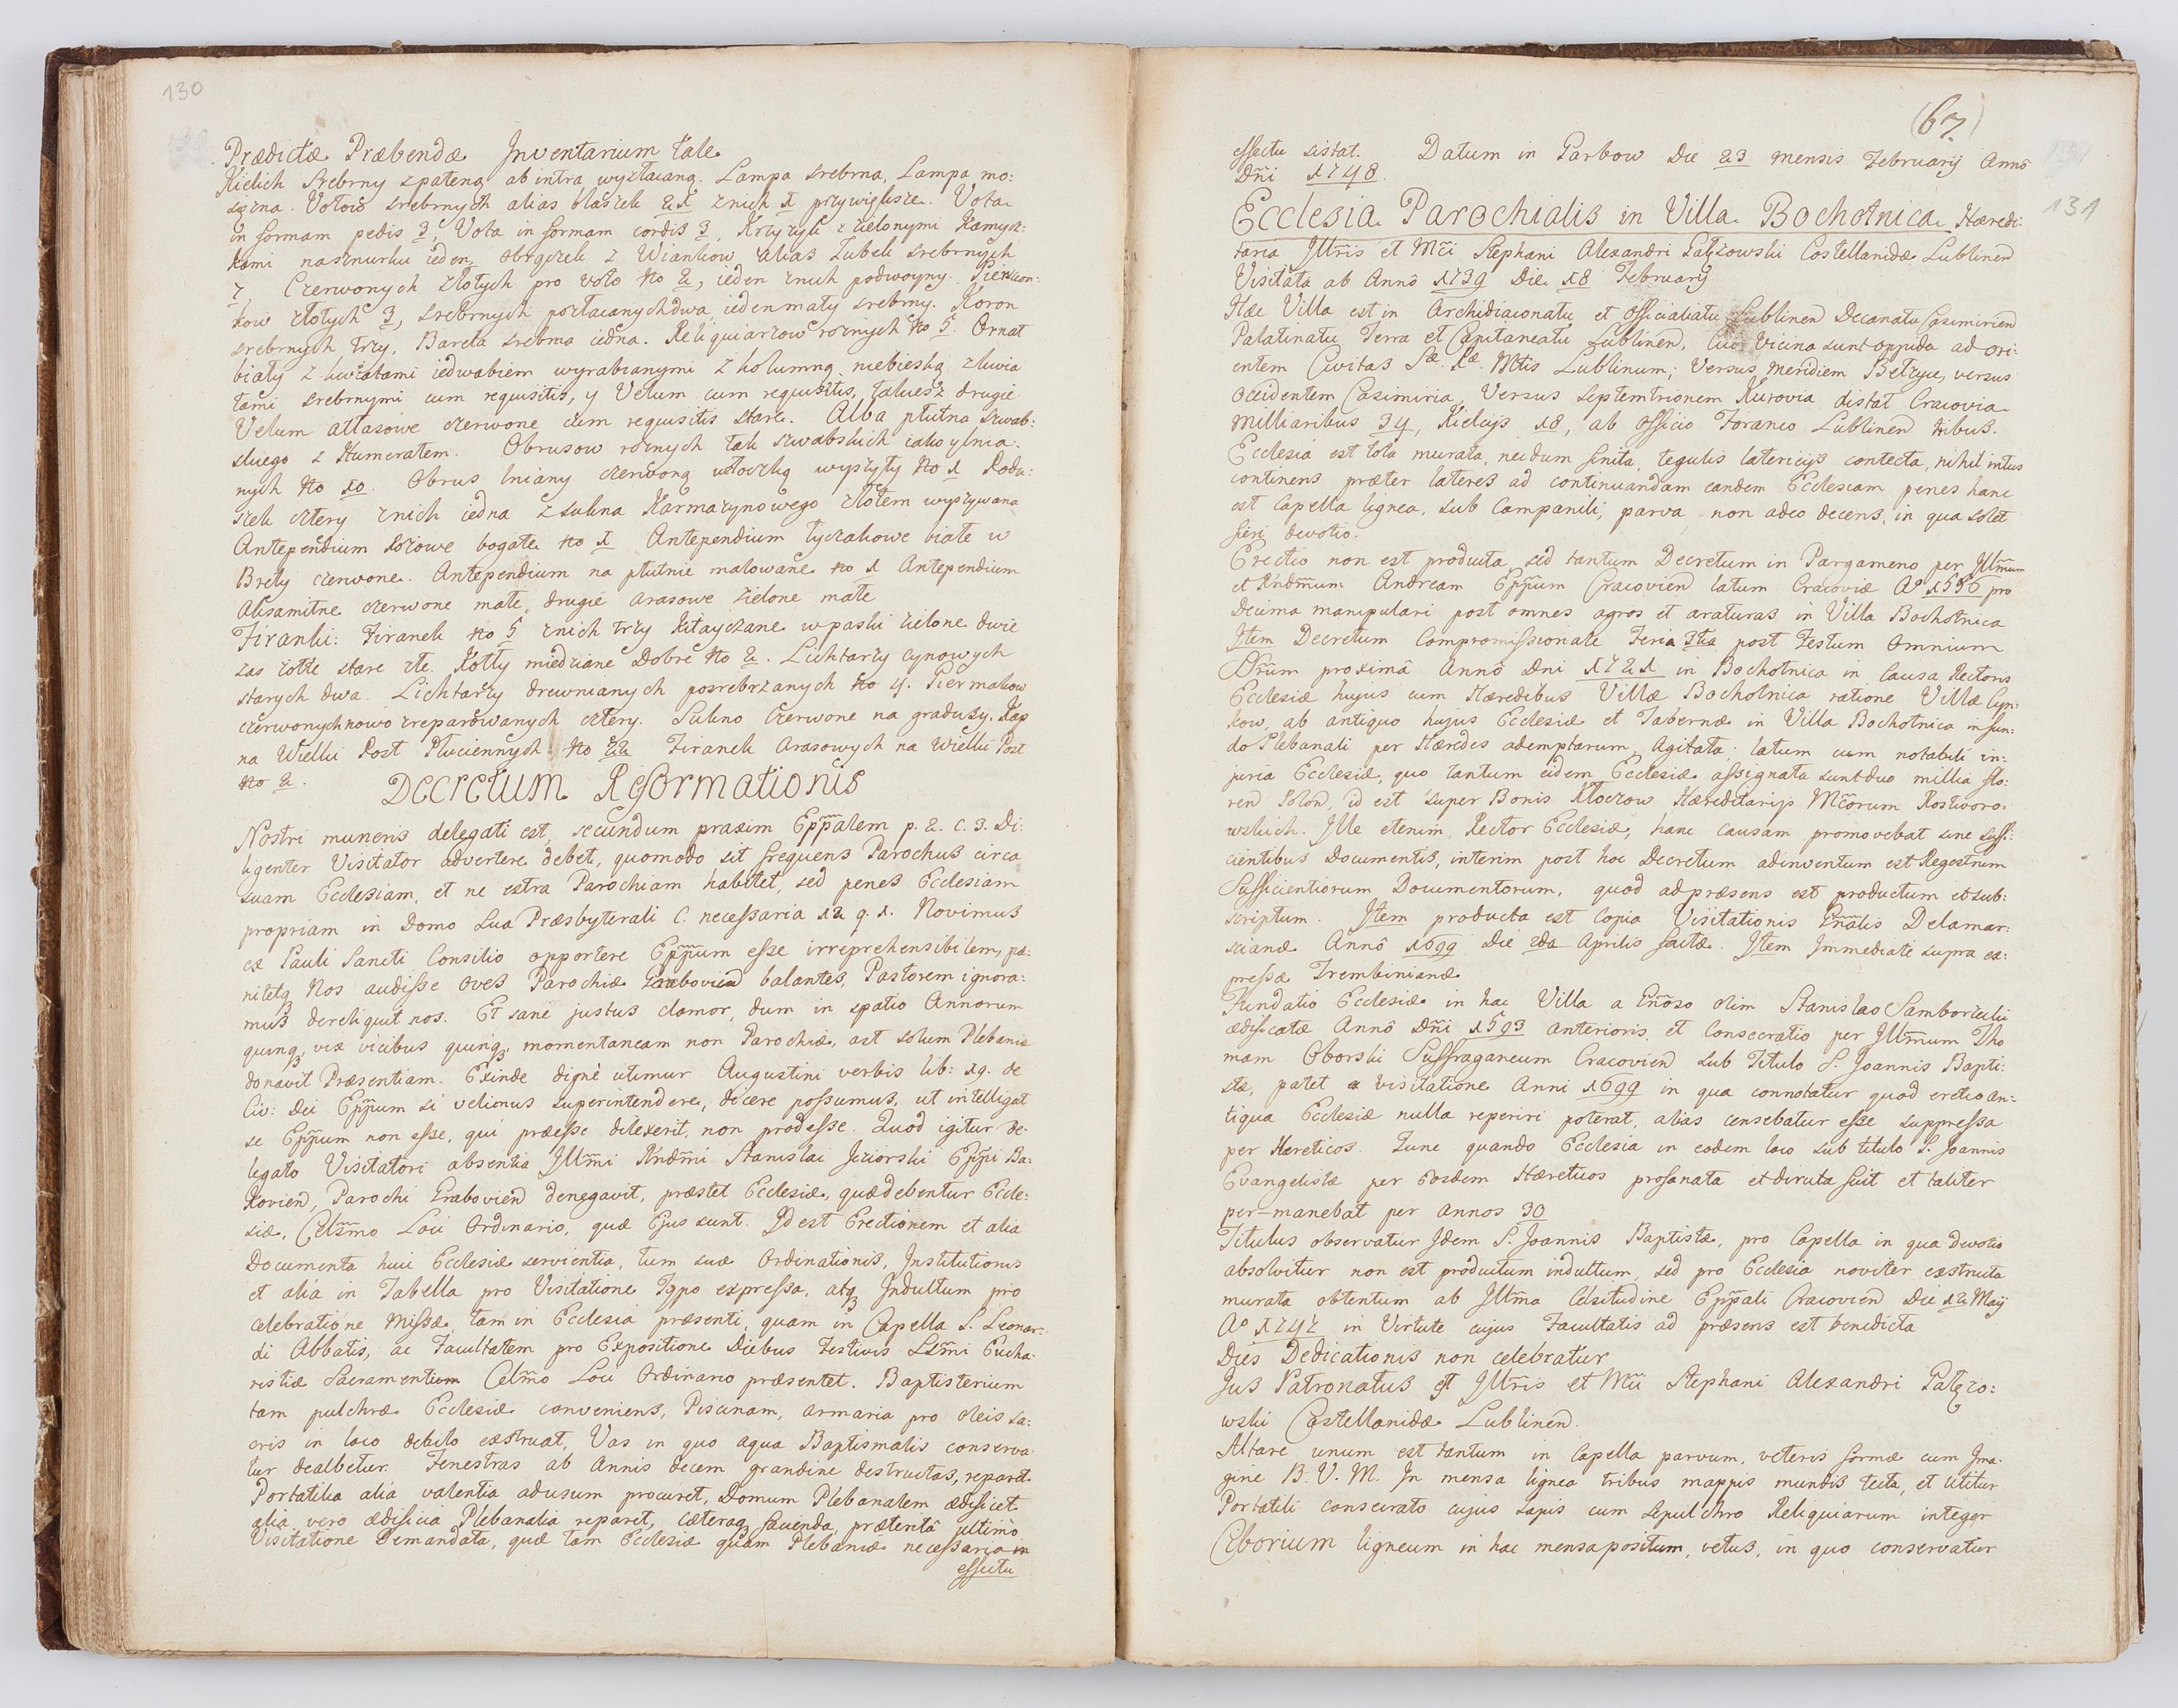 130
Prædictæ Præbendæ Inventarium tale
Kielich srebrny zpateną ab intra wyzłacaną. Lampa srebrna, Lampa mo:
siężna. Votow srebrnych alias blaszek 21 znich 1 przywiększe. Vota
in formam pedis 3, Vota in formam cordis 3, Krzyżyk z zielonymi Kamycz:
kami nasznurku ieden, obrączek z Wiankow alias Lubek srebrnych
7 Czerwonych złotych pro voto No 2, ieden znich podwoyny. Pierscion:
kow złotych 3, srebrnych pozłacanych dwa, ieden mały srebrny. Koron
srebrnych trzy, Bareta srebrna iedna. Reliquiarzow roznych No 5. Ornat
biały z kwiatami iedwabiem wyrabianymi z kolumną niebieską zkwia
tami srebrnymi cum requisitis, y Velum cum requisitis, takiesz drugie
Velum atłasowe czerwone cum requisitis stare. Alba płutna szwab:
skiego z Humerałem. Obrusow roznych tak szwabskich iako ylnia:
nych No 10. Obrus lniany czerwoną włoczką wyszyty No 1 Podu:
szek cztery znich iedna z sukna Karmazynowego złotem wyszywana
Antependium bogate No 1 Antependium łyczakowe białe w
Brety czerwone. Antependium na płutnie malowane No 1 Antependium
Aksamitne czerwone małe, drugie arasowe zielone małe
Firanki: Firanek No 5 znich trzy Kitayczane wpaski zielone dwie
zas żołte stare złe. Kotły miedziane dobre No 2. Lichtarzy cynowych
starych dwa. Lichtarzy drewnianych posrebrzanych No 4. Piermakow
czerwonych nowo zreparowanych cztery. Sukno Czerwone na gradusy. Kap
na Wielki Post Płuciennych No 22 Firanek Arasowych na Wielki Post
No 2.
Decretum Reformationis
Nostri muneris delegati est, secundum praxim Epp̃alem p. 2. C. 3. Di:
ligenter Visitator advertere debet, quomodo sit frequens Parochus circa
suam Ecclesiam, et ne extra Parochiam habitet, sed penes Ecclesiam
propriam in Domo sua Præsbyterali C. necessaria 12 q. 1. Novimus
ex Pauli Sancti Consilio opportere Epp̃um esse irreprehensibilem, pæ:
nitetq Nos audisse oves Parochiæ balantes, Pastorem ignora:
mus dereliquit nos. Et sane justus clamor, dum in spatio Annorum
quinq, vix vicibus quinq, momentaneam non Parochiæ, ast solum Plebaniæ
donavit Præsentiam. Exinde dignè utimur Augustini verbis lib: 19. de
Civ: Dei Epp̃um si velimus superintendere, dicere possumus, ut intelligat
se Epp̃um non esse, qui præesse dilexerit, non prodesse. Quod igitur de:
legato Visitatori absentia Illm̃i Rndm̃i Stanislai Jeziorski Epp̃i Ba:
kovien, Parochi Grabovien denegavit, præstet Ecclesiæ, quæ debentur Eccle:
siæ, Celsm̃o Loci Ordinario, quæ Ejus sunt. Id est Erectionem et alia
Documenta huic Ecclesiæ servientia, tum suæ Ordinationis, Institutionis
et alia in Tabella pro Visitatione Typo expressa, atq Indultum pro
celebratione Missæ, tam in Ecclesia præsenti, quam in Capella S. Leonar:
di Abbatis, ac Facultatem pro Expositione Diebus Festivis SSm̃i Eucha
ristiæ Sacramentum Celm̃o Loci Ordinario præsentet. Baptisterium
tam pulchræ Ecclesiæ conveniens, Piscinam, armaria pro oleis sa:
cris in loco debito exstruat, Vas in quo aqua Baptismalis conserva
tur dealbetur. Fenestras ab Annis decem grandine destructas, reparet.
Portatilia alia valentia adusum procuret, Domum Plebanalem ædificet
alia vero ædificia Plebanalia reparet, cæteraq facienda, præterita ultimò
Visitatione demandata, quæ tam Ecclesiæ quam Plebaniæ necessaria in
effectu
(67)
131
effectu sistat. Datum in Garbow Die 23 mensis Februarij Anno
Dñi 1748.
Ecclesia Parochialis in Villa Bochotnica Hæredi:
taria Illr̃is et Mci Stephani Alexandri Gałęzowski Castellanidæ Lublinen
Visitata ab Annô 1739 Die 18 Februarij
Hæc Villa est in Archidiaconatu et Officialiatu Lublinen Decanatu Casimirien
Palatinatu Terra et Capitaneatu Lublinen, Cui Vicina sunt oppida ad Ori:
entem Civitas Sæ Ræ Mtis Lublinum; Versus Meridiem Bełzyce, versus
Occidentem Casimiria, Versus Septemtrionem Kurovia distat Cracovia
Milliaribus 34, Kielcijs 18, ab Officio Foraneo Lublinen tribus.
Ecclesia est tota murata, necdum finita, tegulis latericijs contecta, nihil intus
continens præter lateres ad continuandam eandem Ecclesiam penes hanc
est Capella lignea, sub Campanili, parva non adeo decens, in qua solet
fieri devotio.
Erectio non est producta sed tantum Decretum in Pargameno per Illm̃um
et Rndm̃um Andream Epp̃um Cracovien latum Cracoviæ Ao 1556 pro
Decima manipulari post omnes agros et araturas in Villa Bochotnica
Item Decretum Compromissionale Feria 3tia post Festum Omnium
SSrũm proximâ Annô Dni 1721 in Bochotnica in Causa Rectoris
Ecclesiæ hujus cum Hæredibus Villæ Bochotnica ratione Villæ Cyn:
kow, ab antiquo hujus Ecclesiæ et Tabernæ in Villa Bochotnica in fun:
do Plebanali per Hæredes ademptarum, Agitata; latum cum notabili in:
juria Ecclesiæ, quo tantum eidem Ecclesiæ assignata sunt duo millia flo:
ren Polon, id est super Bonis Kłoczow Hæreditarijs Mcorum Rostworo:
wskich. Ille etenim Rector Ecclesiæ, hanc causam promovebat sine suffi:
cientibus Documentis, interim post hoc Decretum adinventum est Regestrum
Sufficientiorum Documentorum, quod adpræsens est productum et sub:
scriptum. Item producta est Copia Visitationis Gñalis Delamar:
scianæ Annô 1699 Die 2da Aprilis factæ. Item Immediate supra ex:
pressæ Trembinianæ
Fundatio Ecclesiæ in hac Villa a Gñoso olim Stanislao Samborzecki
ædificatæ Annô Dñi 1593 anterioris et Consecratio per Illm̃um Tho
mam Oborski Suffraganeum Cracovien sub Titulo S. Joannis Bapti:
stæ, patet ex visitatione Anni 1699 in qua connotatur quod erectio an:
tiqua Ecclesiæ nulla reperiri poterat, alias censebatur esse suppressa
per Hæreticos. Tunc quando Ecclesia in eodem loco sub titulo S. Joannis
Evangelistæ per Eosdem Hæreticos profanata et diruta fuit et taliter
per-manebat per annos 30
Titulus observatur Idem S. Joannis Baptistæ, pro Capella in qua devotio
absolvitur non est productum indultum, sed pro Ecclesia noviter exstructa
murata obtentum ab Illm̃a Celsitudine Epp̃ali Cracovien Die 12 Maij
Ao 1747 in Virtute cujus Facultatis ad præsens est benedicta
Dies Dedicationis non celebratur
Jus Patronatus est Illr̃is et Mci Stephani Alexandri Gałęzo:
wski Castellanidæ Lublinen.
Altare unum est tantum in Capella parvum, veteris formæ cum Ima:
gine B. V. M. In mensa lignea tribus mappis mundis tecta, et utitur
Portatili consecrato cujus lapis cum sepulchro Reliquiarum integer
Ciborium ligneum in hac mensa positum, vetus, in quo conservatur